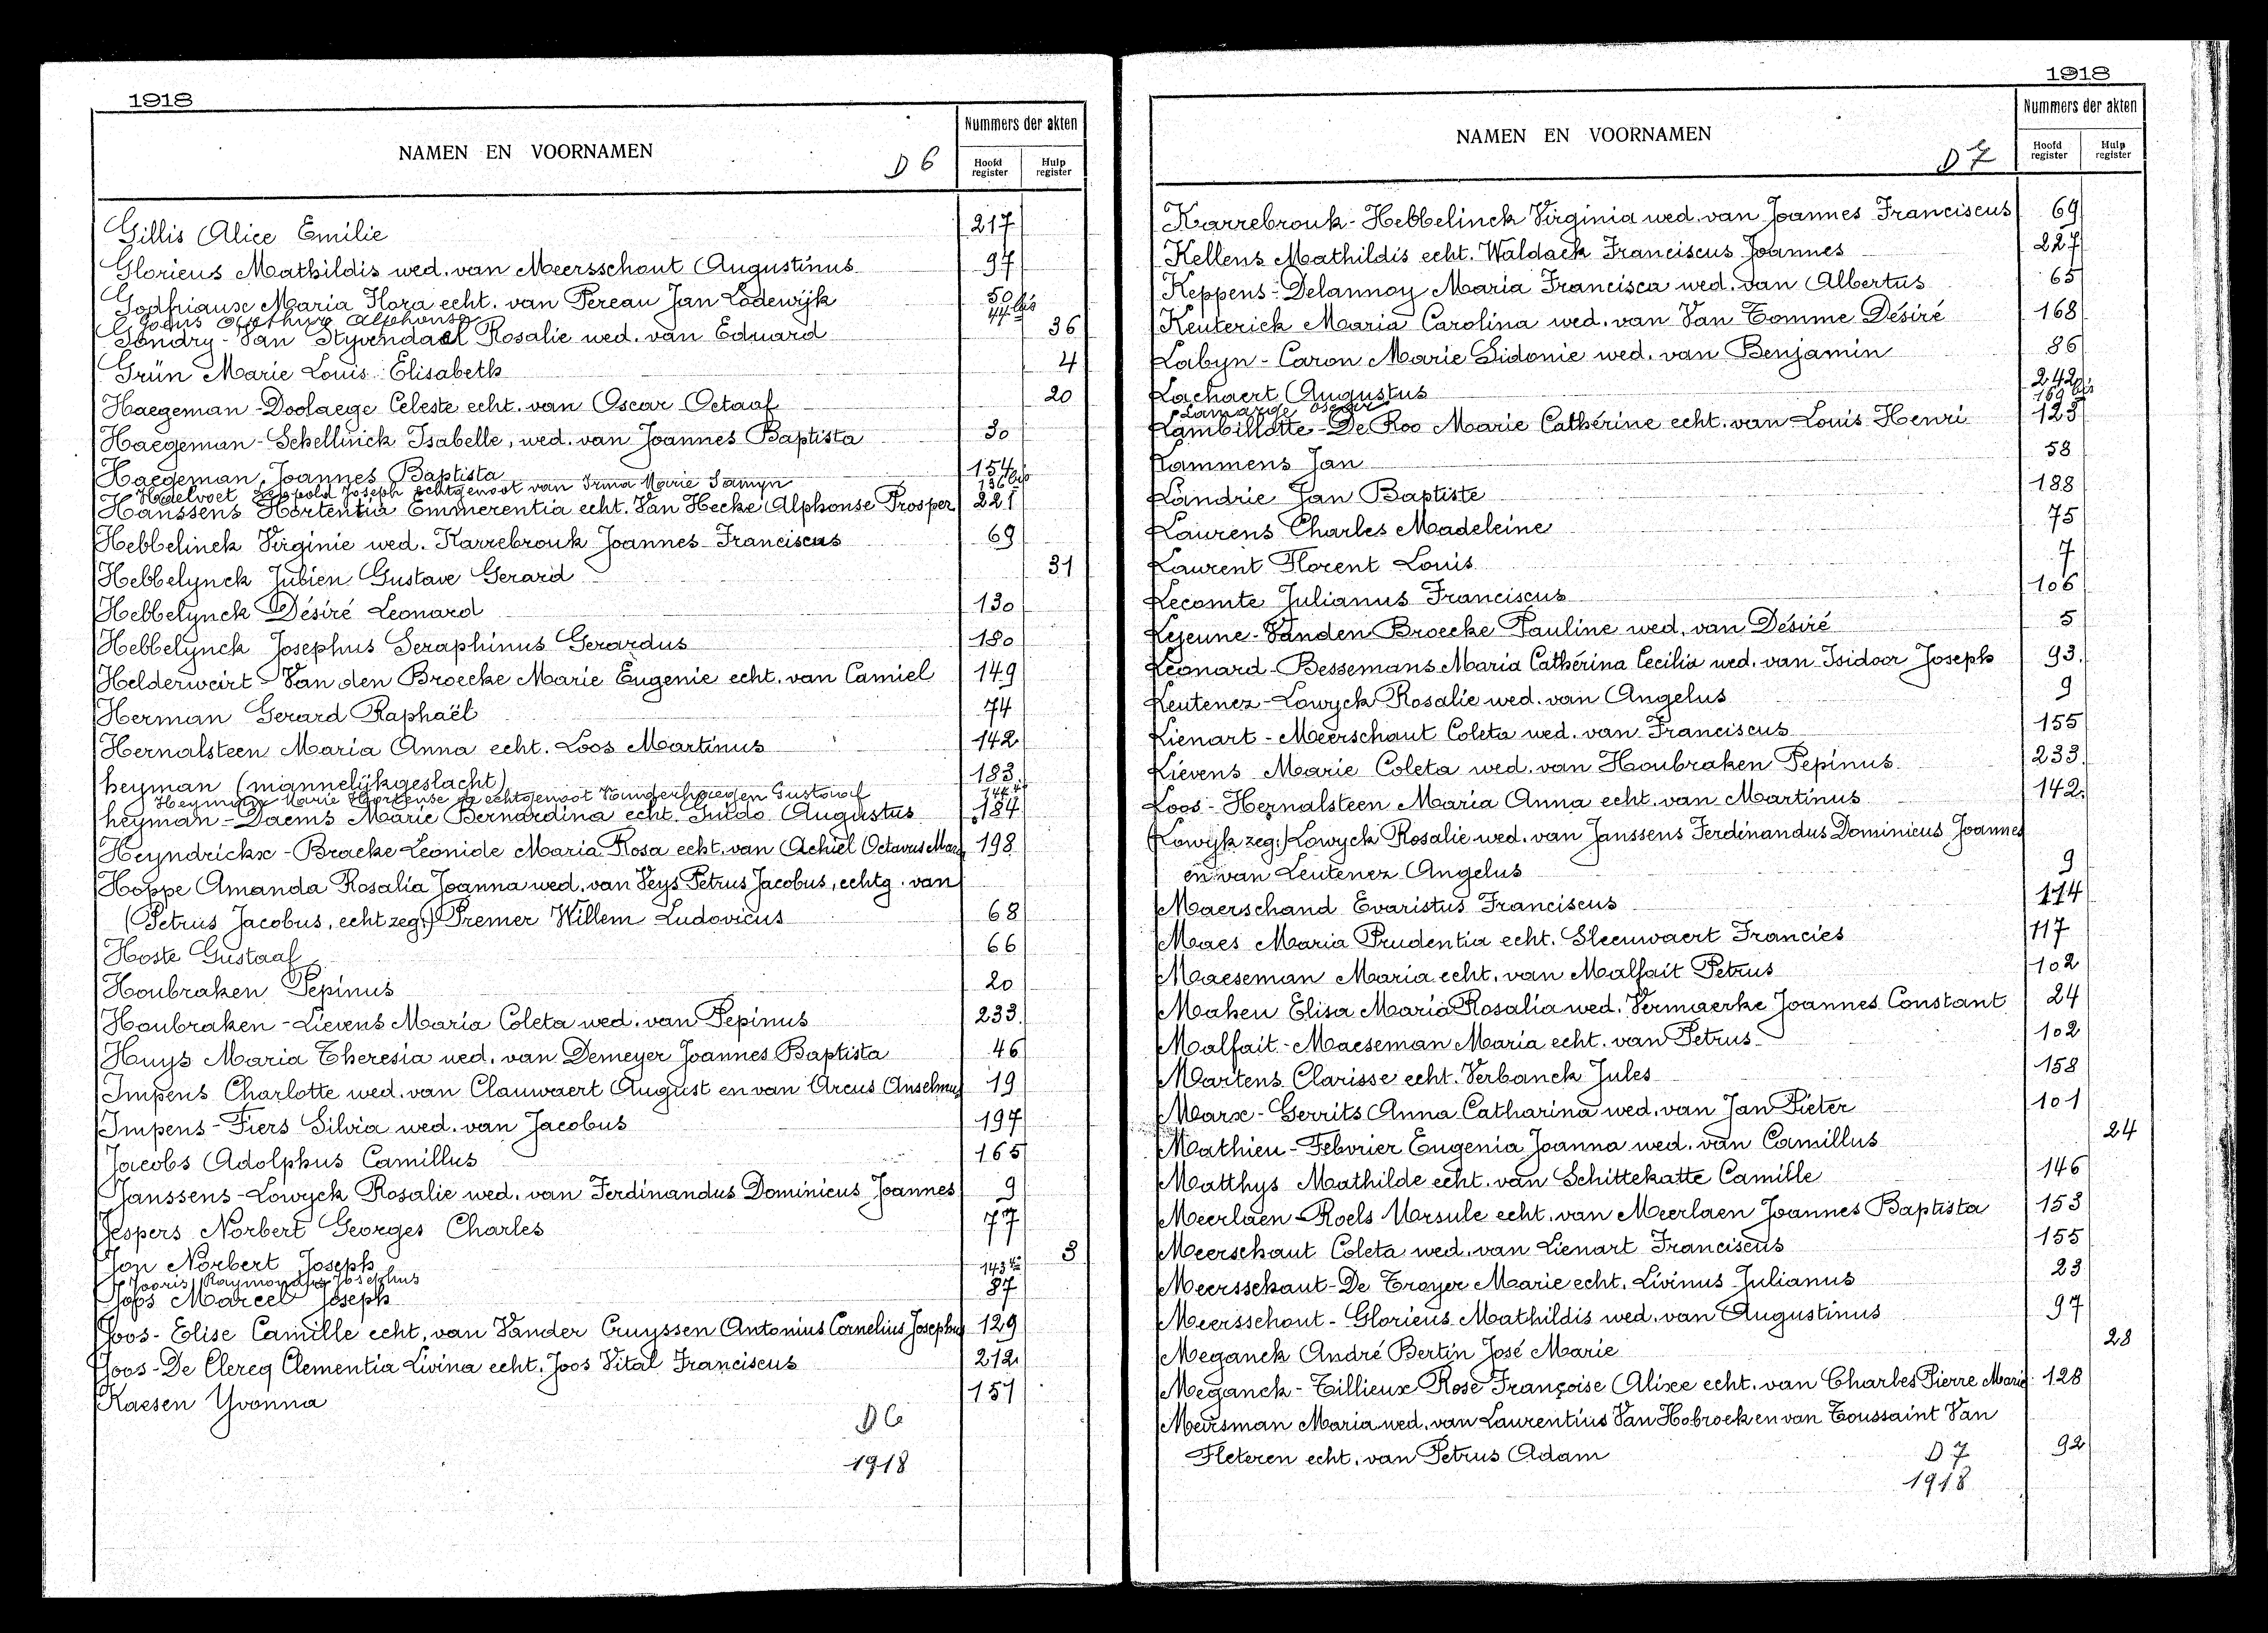 1918
NAMEN EN VOORNAMEN
D 6
Nummers der akten
Hoofd register
Hulp register
Gillis Alice Emilie 217
Glorieus Mathildis wed. van Meersschout Augustinus 97
Godfriaux Maria Flora echt. van Pereau Jan Lodewijk 50
Goens Arthur Alphonse 44 bis
Gondry - Van Styvendael Rosalie wed. van Eduard 36
Grün Marie Louis Elisabeth 4
Haegeman - Doolaege Celeste echt. van Oscar Octaaf 20
Haegeman - Schellinck Isabelle, wed. van Joannes Baptista 30
Haegeman, Joannes Baptista 154
Haelvoet Leopold Joseph echtgenoot van Irma Marie Samyn 136 bis
Hanssens Hortentia Emmerentia echt. Van Hecke Alphonse Prosper 221
Hebbelinck Virginie wed. Karrebrouk Joannes Franciscus 69
Hebbelynck Jubien Gustave Gerard 31
Hebbelynck Désiré Leonard 130
Hebbelynck Josephus Seraphinus Gerardus 180
Helderweirt - Van den Broecke Marie Eugenie echt. van Camiel 149
Herman Gerard Raphaël 74
Hernalsteen Maria Anna echt. Loos Martinus 142
heyman (mannelijkgeslacht) 183
Heyman Marie Hortense echtgenoot Gustaaf
heyman - Daems Marie Bernardina echt. Guido Augustus 184
Heyndrickx - Bracke Leonide Maria Rosa echt. van Achiel Octavus Marie 198
Hoppe Amanda Rosalia Joanna wed. van Veys Petrus Jacobus, echtg. van
(Petrus Jacobus, echt zeg:) Premer Willem Ludovicus 68
Hoste Gustaaf 66
Houbraken Pepinus 20
Houbraken - Lievens Maria Coleta wed. van Pepinus 233
Huys Maria Theresia wed. van Demeyer Joannes Baptista 46
Impens Charlotte wed. van Clauwaert August en van Arcus Anselmus 19
Impens - Fiers Silvia wed. van Jacobus 197
Jacobs Adolphus Camillus 165
Janssens - Lowyck Rosalie wed. van Ferdinandus Dominicus Joannes 9
Jespers Norbert Georges Charles 77
Jon Norbert Joseph 3
Jooris Raymondus Josephus 143 bis
Joos Marcel Joseph 87
Joos - Elise Camille echt. van Vander Cruyssen Antonius Cornelius Josephus 129
Joos - De Clercq Clementia Livina echt. Joos Vital Franciscus 212
Kaesen Yvonna 151
D 6
1918
1918
NAMEN EN VOORNAMEN
D 7
Nummers der akten
Hoofd register
Hulp register
Karrebrouk - Hebbelinck Virginia wed. van Joannes Franciscus 69
Kellens Mathildis echt. Waldack Franciscus Joannes 227
Keppens - Delannoy Maria Francisca wed. van Albertus 65
Keuterick Maria Carolina wed. van Van Tomme Désiré 168
Labyn - Caron Marie Sidonie wed. van Benjamin 86
Lachaert Augustus 242
Lamarge Oscar 169 bis
Lambillotte - De Roo Marie Cathérine echt. van Louis Henri 123
Lammens Jan 58
Landrie Jan Baptiste 188
Laurens Charles Madeleine 75
Laurent Florent Louis 7
Lecomte Julianus Franciscus 106
Lejeune - Vanden Broecke Pauline wed. van Désiré 5
Léonard - Bessemans Maria Cathérina Cecilia wed. van Isidoor Joseph 93
Leutenez - Lowyck Rosalie wed. van Angelus 9
Lienart - Meerschaut Coleta wed. van Franciscus 155
Lievens Marie Coleta wed. van Houbraken Pepinus 233
Loos - Hernalsteen Maria Anna echt. van Martinus 142
(Lowijk zeg:) Lowyck Rosalie wed. van Janssens Ferdinandus Dominicus Joannes
en van Leutenez Angelus 9
Maerschand Evaristus Franciscus 114
Maes Maria Prudentia echt. Sleeuwaert Francies 117
Maeseman Maria echt. van Malfait Petrus 102
Mahen Elisa Maria Rosalia wed. Vermaerke Joannes Constant 24
Malfait - Maeseman Maria echt. van Petrus 102
Martens Clarisse echt. Verbanck Jules 158
Marx - Gerrits Anna Catharina wed. van Jan Pieter 101
Mathieu - Febvrier Eugenia Joanna wed. van Camillus 24
Matthys Mathilde echt. van Schittekatte Camille 146
Meerlaen - Roels Ursule echt. van Meerlaen Joannes Baptista 153
Meerschaut Coleta wed. van Lienart Franciscus 155
Meersschaut - De Troyer Marie echt. Livinus Julianus 23
Meersschout - Glorieus Mathildis wed. van Augustinus 97
Meganck André Bertin José Marie 28
Meganck - Tillieux Rose Françoise Alixe echt. van Charles Pierre Marie 128
Meirsman Maria wed. van Laurentius Van Hobroek en van Toussaint Van
Fleteren echt. van Petrus Adam 92
D 7
1918